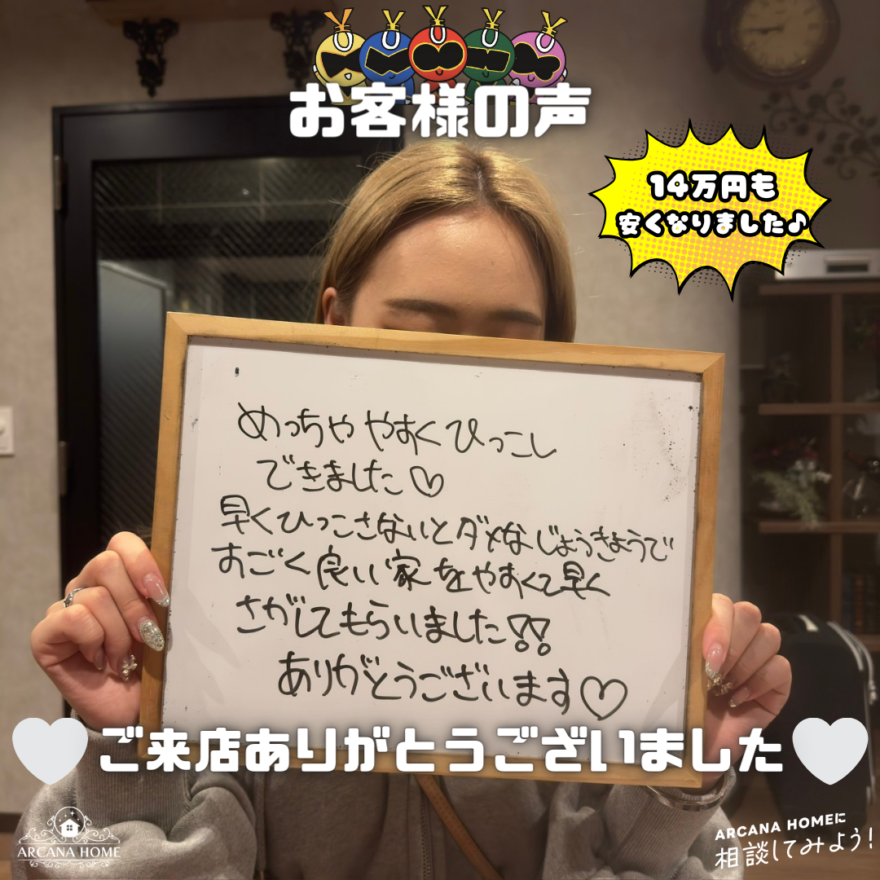 お客様の声
14万円も
安くなりました♪
めっちゃ やすく ひっこし
できました♡
早くひっこさないとダメなじょうきょうで
すごく良い家をやすくて早く
さがしてもらいました!!
ありがとうございます♡
ご来店ありがとうございました
ARCANA HOME
ARCANA HOMEに
相談してみよう!